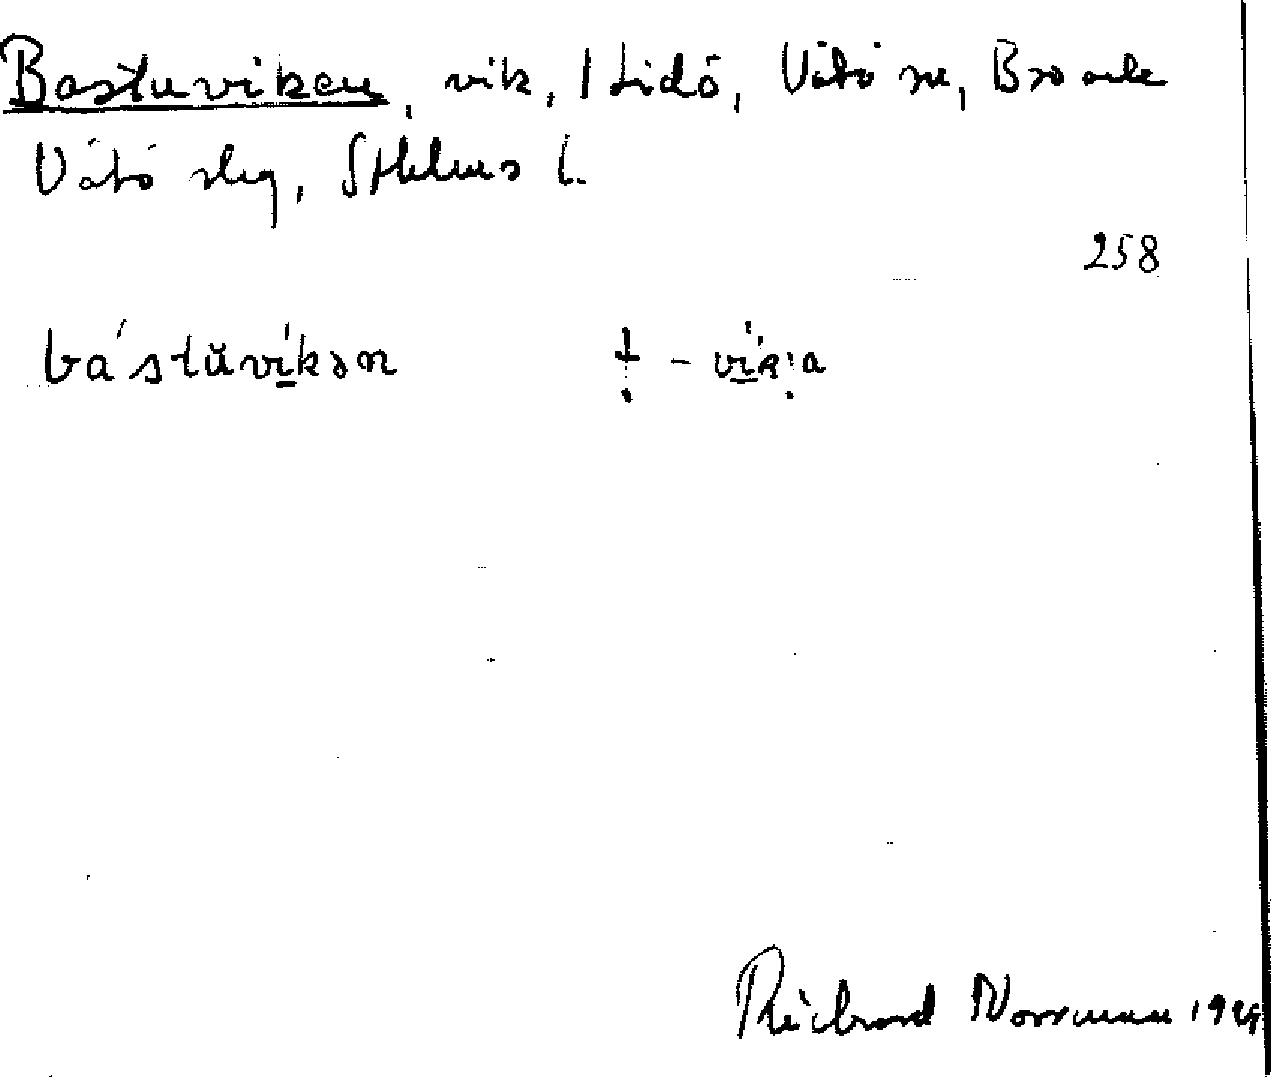 Bastuviken, vik, 1 Lidö, Vätö sn, Bro o
Vätö slg, Sthlms l.
258
bástŭvíkən ‡ - vík:a
Richard Norrman 19